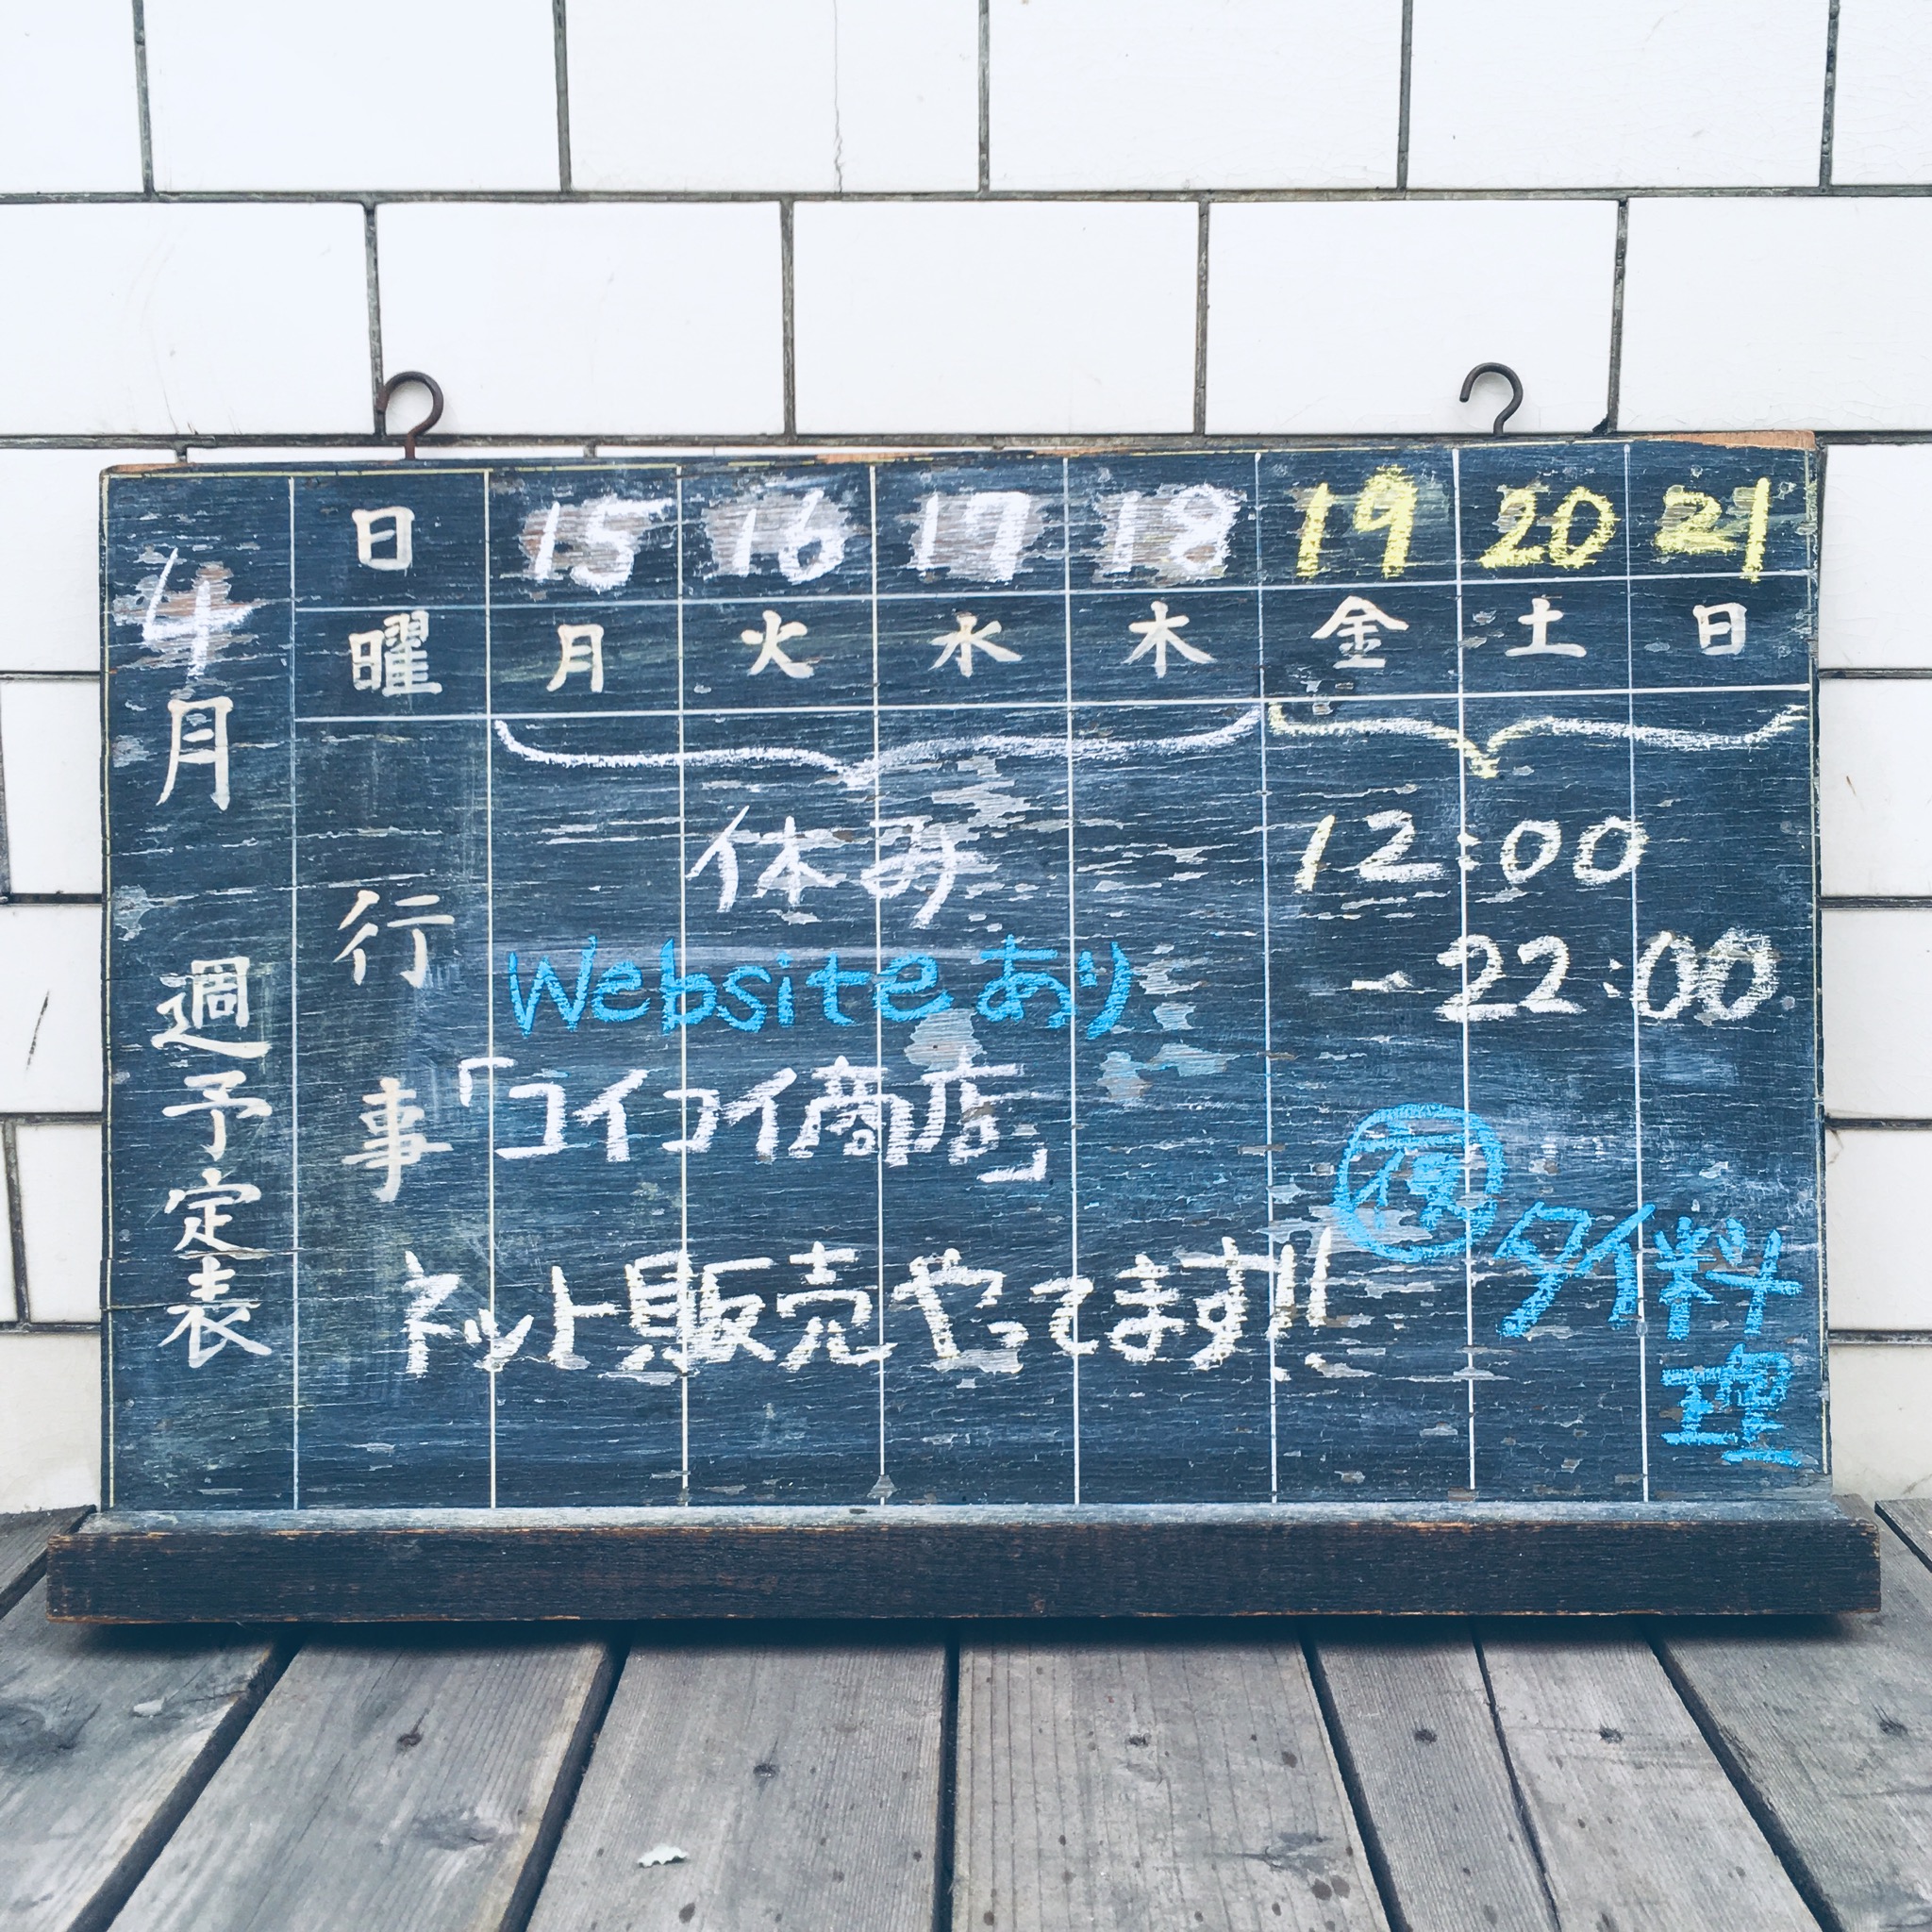 4月 週予定表
日 15 16 17 18 19 20 21
曜 月 火 水 木 金 土 日
行事
休み
Websiteあり
「コイコイ商店」
ネット販売やってます!!
12:00
-22:00
夜
タイ料
理